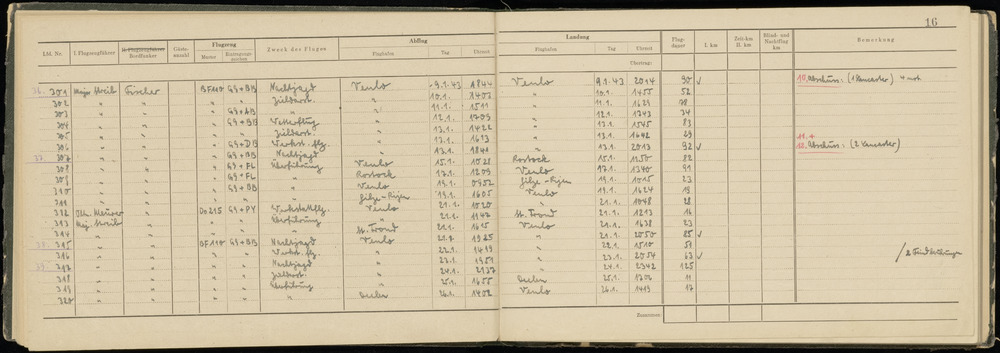 16
Lfd. Nr. I. Flugzeugführer II. Flugzeugführer Bordfunker Gästeanzahl Flugzeug Muster Eintragungszeichen Zweck des Fluges Abflug Flughafen Tag Uhrzeit Landung Flughafen Tag Uhrzeit Flugdauer I. km Zeit-km II. km Blind- und Nachtflug km Bemerkung
Übertrag:
36. 301 Maj. Streib Fischer BF 110 G9+BB Nachtjagd Venlo 9.1.43 1844 Venlo 9.1.43 2014 90 ✓ 10. Abschuss: (1 Lancaster)
302 " " " " " " 10.1. 1403 " 10.1. 1455 52
303 " " " G9+AB " " 11.1. 1511 " 11.1. 1629 78
304 " " " G9+BB " 12.1. 1709 " 12.1. 1743 34
305 " " " " " " 13.1. 1422 " 13.1. 1545 83
306 " " " G9+DB Werkst.flg. " 13.1. 1613 " 13.1. 1642 29 11. +
37. 307 " " " G9+BB Nachtjagd " 13.1. 1841 " 13.1. 2013 92 ✓ 12. Abschuss: (2 Lancaster)
308 " " " G9+FL Überführung Venlo 15.1. 1028 Rostock 15.1. 1150 82
309 " " " G9+FL " Rostock 17.1. 1209 Venlo 17.1. 1340 91
310 " " " G9+BB " Venlo 19.1. 0952 Gilze-Rijen 19.1. 1015 23
" " " " " Gilze-Rijen 19.1. 1605 Venlo 19.1. 1624 19
312 Do 215 G9+PY Werkstattflg. Venlo 21.1. 1020 " 21.1. 1048 28
313 Maj. Streib " " " Überführung " 21.1. 1147 St. Trond 21.1. 1213 26
314 " " " " " St. Trond 21.1. 1615 Venlo 21.1. 1638 23
38. 315 " " BF 110 G9+BB Nachtjagd Venlo 21.1. 1925 " 21.1. 2050 85 ✓
316 " " " " Werkst.flg. " 22.1. 1419 " 22.1. 1510 51
39. 317 " " " " Nachtjagd " 23.1. 1951 " 23.1. 2054 63 ✓
318 " " " " " 24.1. 2137 " 24.1. 2342 125
319 " " " " Überführung " 25.1. 1655 Deelen 25.1. 1706 11
320 " " " " " Deelen 26.1. 1402 Venlo 26.1. 1419 17
Zusammen: